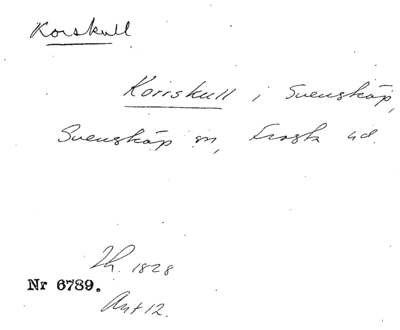 Korskull
Korrskull i Svenskåp,
Svenskåp sn, Frosta hd.
Th. 1828
Nr 6789.
Ant 12.